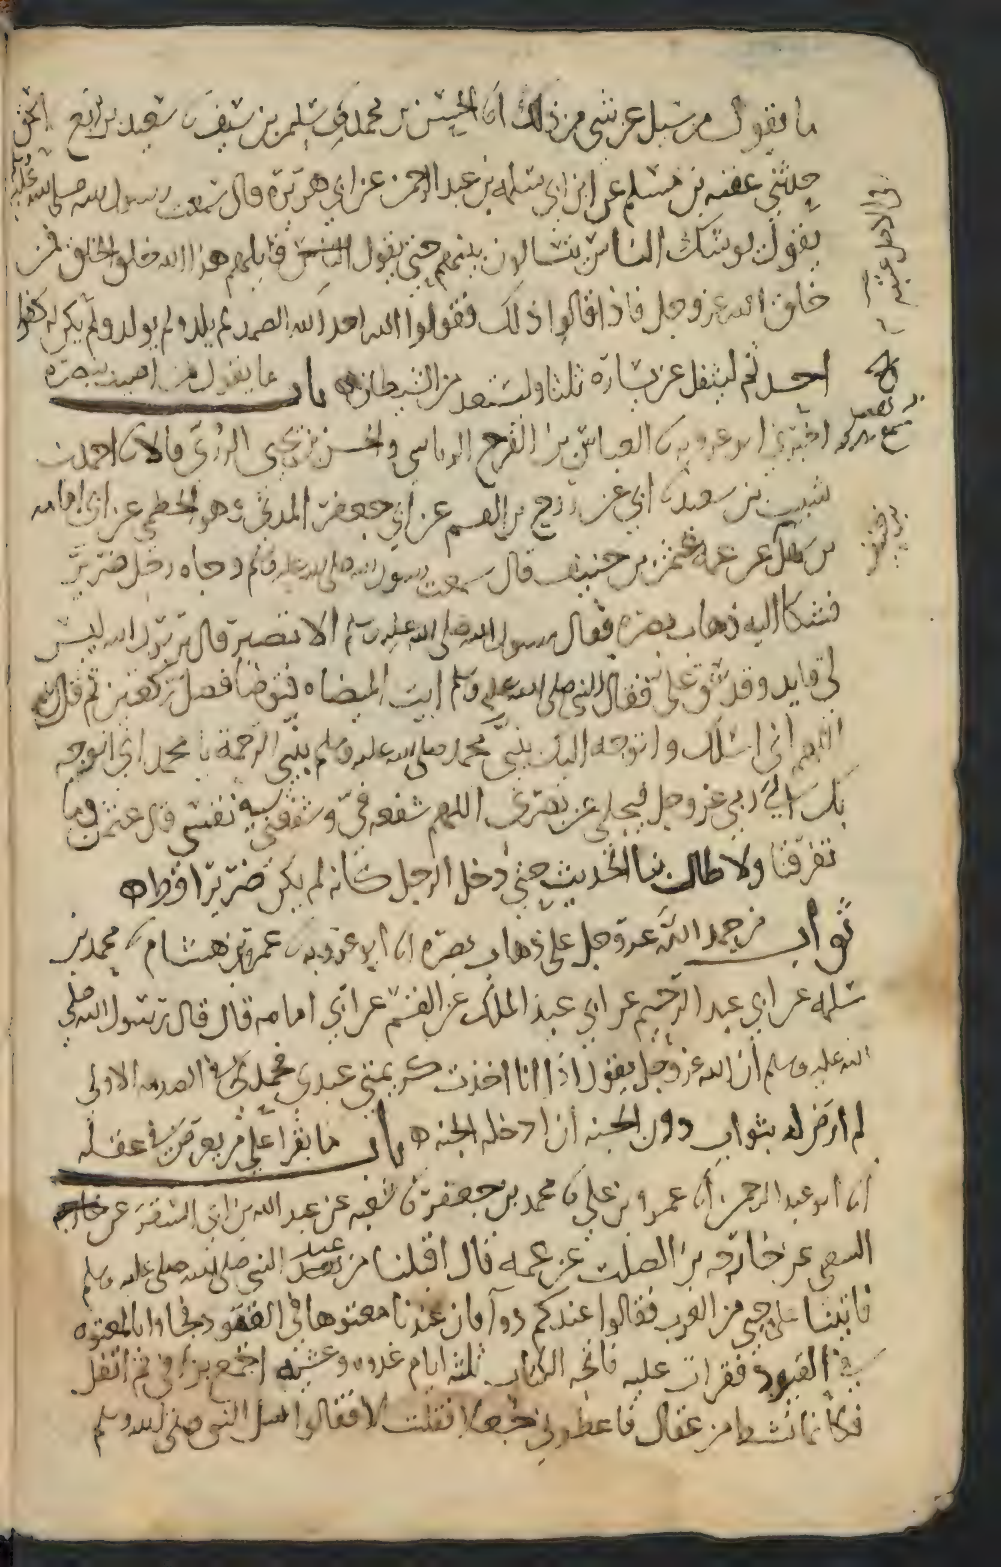 ما يقول من سئل عن شي من ذلك انا الحسين بن محمد في سليمن بن سيف سعيد بن بزيع ابن اسحق
حدثني عتبه بن مسلم عن ابن ابي سلمه بن عبد الرحمن عن ابي هريرة قال سمعت رسول الله صلى الله عليه وسلم
يقول يوشك الناس يتسالون بينهم حتى يقول قايلهم هذا الله خلق الخلق فمن
خلق الله عز وجل فاذا قالوا ذلك فقولوا الله احد الله الصمد لم يلد ولم يولد ولم يكن له كفوا
احد ثم ليتفل عن يساره ثلثا وليستعذ من الشيطان ه باب ما يقول من اصيب ببصره
اخبرني ابو عروبه العباس بن الفرج الرياشي والحسن بن يحيى الرزي قالا احمد بن
شبيب بن سعيد ابي عن روح بن القسم عن ابي جعفر المدني وهو الخطمي عن ابي امامه
بن سهل عن عمه عثمن بن حنيف قال سمعت رسول الله صلى الله عليه وسلم وجاه رجل ضرير
فشكا اليه ذهاب بصره فقال رسول الله صلى الله عليه وسلم الا تصبر قال يرسول الله ليس
لي قايد وقد شق علي فقال النبي صلى الله عليه وسلم ايت الميضاه فتوضا فصل ركعتين ثم قل
اللهم اني اسلك واتوجه اليك بنبيي محمد صلى الله عليه وسلم نبي الرحمة يا محمد اني اتوجه
بك الي ربي عز وجل فيجلي عن بصري اللهم شفعه في وشفعني في نفسي قال عثمن وما
تفرقنا ولا طال بنا الحديث حتى دخل الرجل كانه لم يكن ضريرا قط ه
ثواب من حمد الله عز وجل على ذهاب بصره انا ابو عروبه عمرو بن هشام محمد بن
سلمه عن ابي عبد الرحيم عن ابي عبد الملك عن القسم عن ابي امامه قال قال رسول الله صلى
الله عليه وسلم ان الله عز وجل يقول اذا انا اخذت كريمتي عبدي فحمدني عند الصدمه الاولى
لم ارض له بثواب دون الجنه ان ادخله الجنه ه باب ما يقرا على من يعرض في عقله
انا ابو عبد الرحمن انا عمرو بن علي محمد بن جعفر شعبه عن عبد الله بن ابي السفر عن
الشعبي عن خارجه بن الصلت عن عمه قال اقبلنا من عند النبي صلى الله عليه وسلم
فاتينا على حي من العرب فقالوا عندكم دوا فان عندنا معتوها في القيود فجاوا بالمعتوه
في القيود فقرات عليه فاتحه الكتاب ثلثه ايام غدوه وعشيه اجمع بزاقي ثم اتفل
فكانما نشط من عقال فاعطوني جعلا فقلت لا فقالوا سل النبي صلى الله عليه وسلم